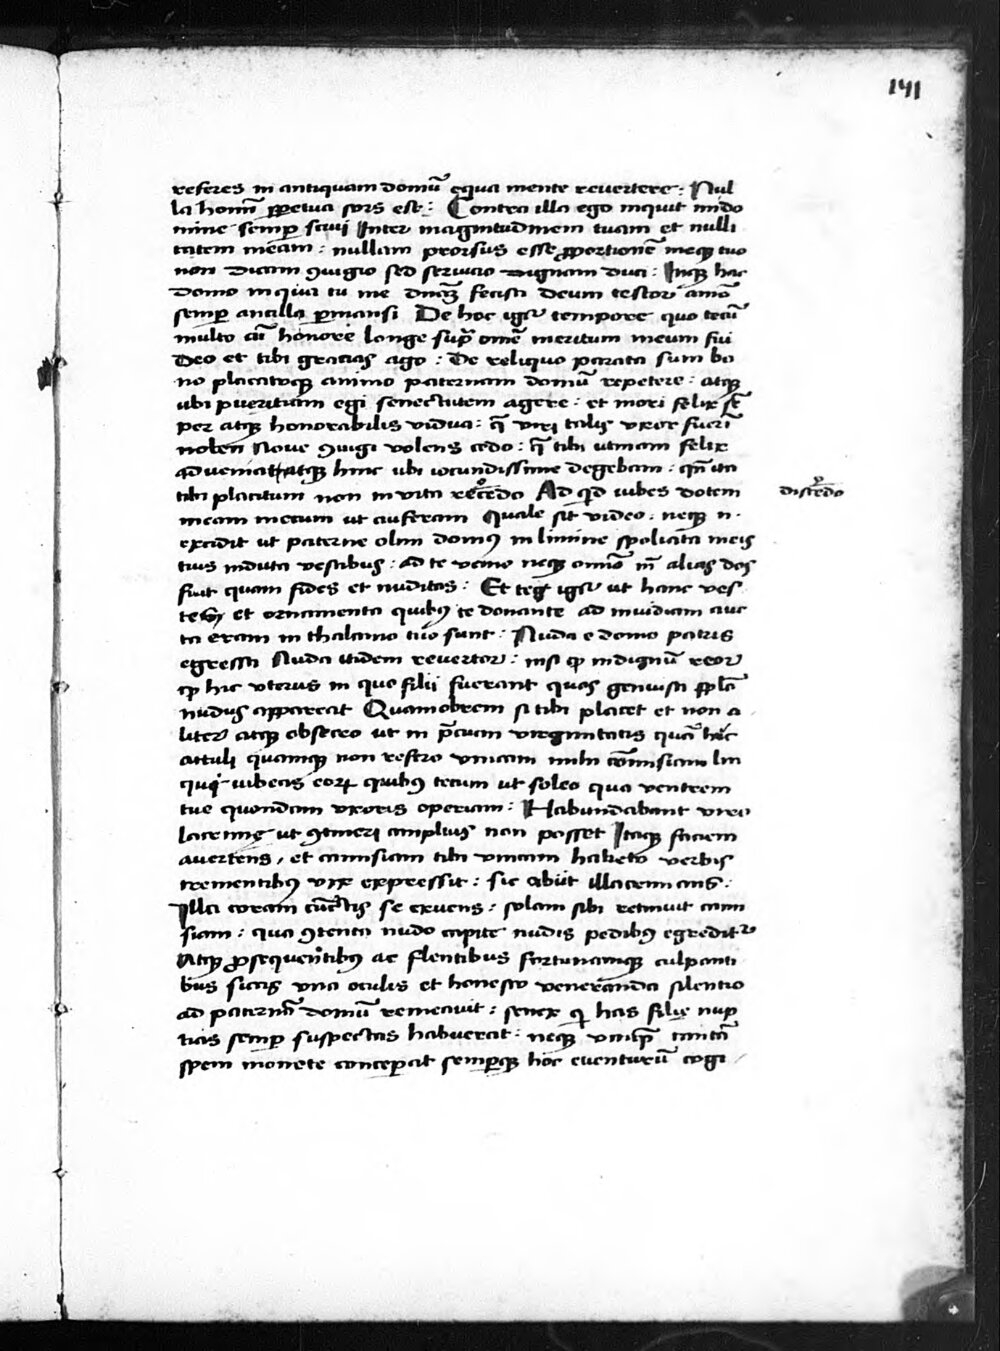 141
referes in antiquam domū equa mente revertere : Nul
la homī ꝑpetua sors est : Contra illa ego inquit mi do
mine semꝑ scivi Inter magnitudinem tuam et nulli
tatem meam : nullam prorsus esse ꝓportionē meqꝫ tuo
non dicam ꝯiugio sed servicio dignam duxi : Inqꝫ hac
domo in qua tu me dn̄aꝫ fecisti deum testor animo
semꝑ ancilla ꝑmansi De hoc igit᷑ tempore quo tecū
multo cū honore longe supra om̄e meritum meum fui
deo et tibi gracias ago : De reliquo parata sum bo
no placatoqꝫ animo paternam domū repetere : atqꝫ
ubi pueritiam egi senectutem agere : et mori felix sē
per atqꝫ honorabilis vidua : q̄ viri talis uxor fueri
nolen Nove ꝯiugi volens cedo : q̄ tibi utinam felix
adveniat atqꝫ hinc ubi iocundissime degebam : qn̄ ita
tibi placitum non invita recedo Ad qd iubes dotem
discedo
meam mecum ut auferam Quale sit video : neqꝫ n̄
excidit ut paterne olim domꝯ in limine spoliata meis
tuis induta vestibus : ad te veni neqꝫ omnīo m̄ alias dos
fuit quam fides et nuditas : Et teḡ igit᷑ ut hanc ves
tem et ornamenta quibꝯ te donante ad invidiam auc
ta eram in thalamo tuo sunt : Nuda e domo patris
egressa Nuda itidem revertor : nisi ꝙ indignū reor
ꝙ hic uterus in quo filii fuerant quos genuisti ꝓplo
nudus appareat Quamobrem si tibi placet et non a
liter atqꝫ obsecro ut in p̄cium virginitatis quā huc
attuli quamqꝫ non refero unicam mihi camisiam lin
qui iubeas eoꝝ quibꝯ tecum ut soleo qua ventrem
tue quondam uxoris operiam : Habundabant viro
lacrime ut ꝯtineri amplius non posset Itaqꝫ faciem
avertens / et camisiam tibi unicam habeto verbis
trementibꝯ vix expressit : sic abiit illacrimans :
Illa coram cūctis se exuens : solam sibi retinuit cami
siam : qua ꝯtenta nudo capite nudis pedibꝯ egredit᷑
Atqꝫ ꝓsequentibꝯ ac flentibus fortunamqꝫ culpanti
bus siccis una oculis et honesto veneranda silentio
ad paternā domū remeavit : senex qi has filie nup
tias semꝑ suspectas habuerat : neqꝫ unꝙ tantā
spem monete conceperat semperqꝫ hoc eventurū cogi